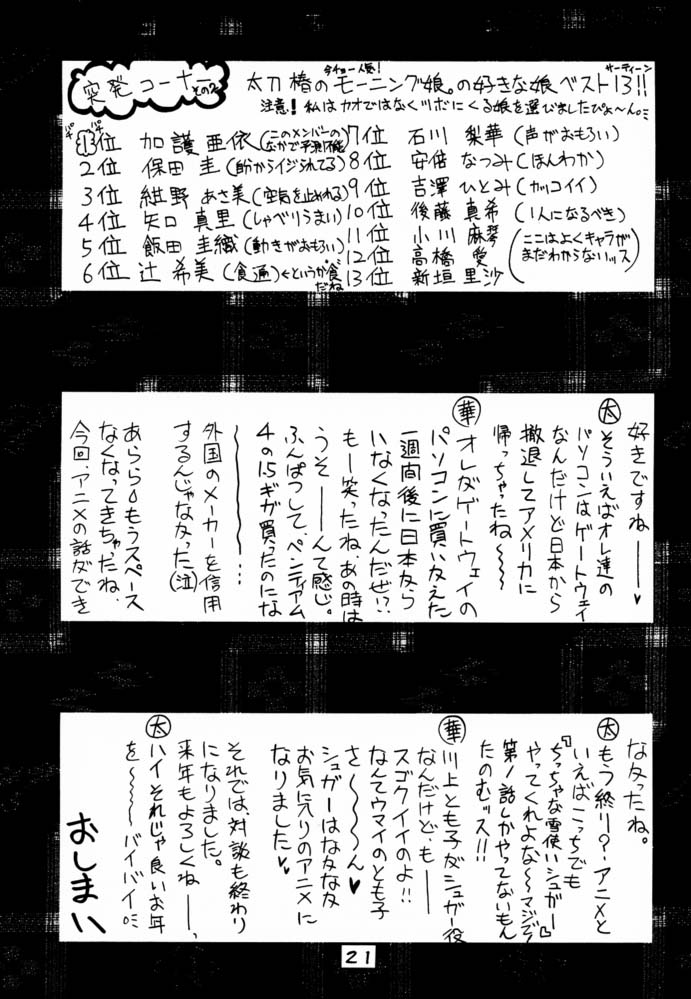 突発コーナー その2
今チョー人気!
サーティーン
太刀椿のモーニング娘。の好きな娘ベスト13!!
注意! 私はカオではなくツボにくる娘を選びましたぴょ〜ん。
1位 加護亜依(このメンバーのなかで予測不能)
2位 保田 圭(節からイジられてる)
3位 紺野 あさ美(空気を止めれる)
4位 矢口 真里(しゃべりうまい)
5位 飯田 圭織(動きがおもろい)
6位 辻 希美(食遍)←というか食だね
7位 石川 梨華(声がおもろい)
8位 安倍 なつみ(ほんわか)
9位 吉澤 ひとみ(カッコイイ)
10位 後藤 真希(1人になるべき)
11位 小川 麻琴
12位 高橋 愛
13位 新垣 里沙
(ここはよくキャラがまだわからないッス)
好きですね———♥
太 そういえばオレ達の
パソコンはゲートウェイ
なんだけど日本から
撤退してアメリカに
帰っちゃったね〜〜〜
華 オレがゲートウェイの
パソコンに買い変えた
一週間後に日本から
いなくなったんだぜ!?
もー笑ったね、あの時は
うそ——んて感じ。
ふんぱつして、ペンティアム
4の1.5ギガ買ったのにな
〜〜〜〜〜…
外国のメーカーを信用
するんじゃなかった(泣)
あららもうスペース
なくなってきちゃたね、
今回、アニメの話ができ
なかったね。
太 もう終り?アニメと
いえばこっちでも
『ちっちゃな雪使いシュガー』
やってくれよな〜〜マジで
第1話しかやってないもん
たのむッス!!
華 川上とも子がシュガー役
なんだけど、も——
スゴクイイのよ!!
なんてウマイのとも子
さ〜〜〜ん♥
シュガーはなかなか
お気に入りのアニメに
なりました♥♥
それでは、対談も終わり
になりました。
来年もよろしくね——っ
太 ハイそれじゃ良いお年
を〜〜〜〜バイバイ
おしまい
21